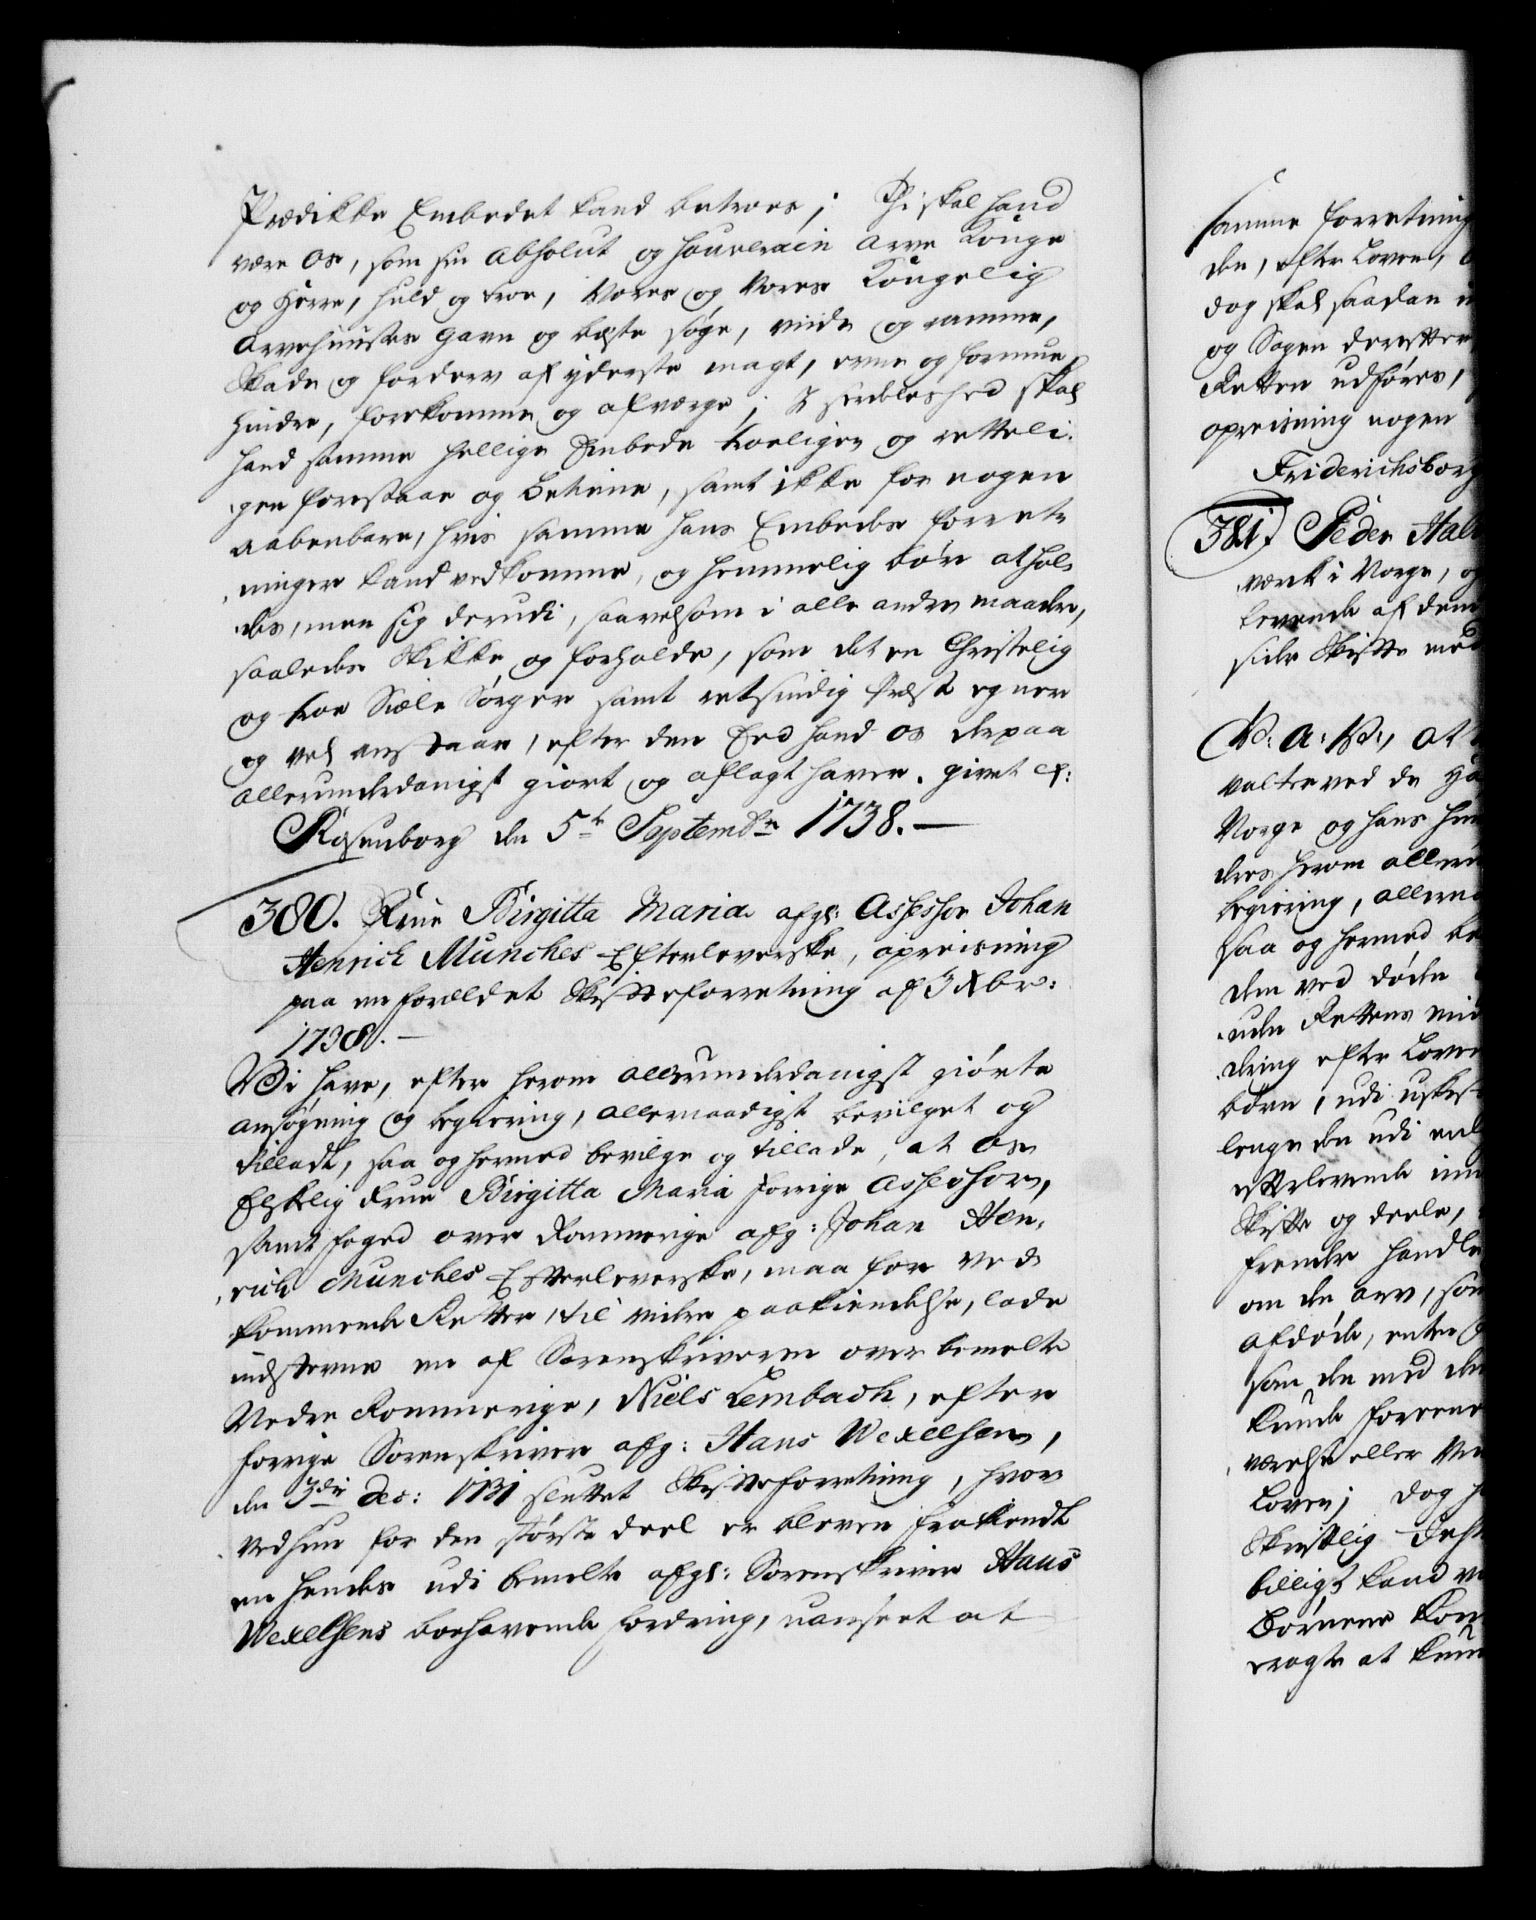 Prædikke Embedet kand betroes; Thi skal hand
være Os, som sin Absolut og Souverain Arve Konge
og Herre, huld og troe, Vores og Vores Kongelig
Arvehuuses gavn og beste søge, viide og ramme,
Skade og forderv af yderste magt, evne og formue
hindre, forekomme og afværge; I særdeleshed skal
hand samme hellige Embede troeligen og retteli-
gen forestaae og betiene, samt ikke for nogen
aabenbare, hvis samme hans Embedes forret-
ninger kand vedkomme, og hemmelig bør athol-
des, men sig derudi, saavelsom i alle andre maader,
saaledes Skikke og forholde, som det en Christelig
og troe Siæle Sørger samt retsindig Præst egner
og vel anstaar, efter den Eed hand Os derpaa
allerunderdanigst giort og aflagt haver. givet &:
Rosenborg den 5te Septembr 1738.—
380. Frue Birgitta Maria afgl: Assessor Johan
Henrich Munches Efterleverske, opreisning
paa en forældet Skifteforretning af 3 Xbr:
1738.—
Vi have, efter herom allerunderdanigst giørte
ansøgning og begiering, allernaadigst bevilget og
tilladt, saa og hermed bevilge og tillade, at Os
Elskelig Frue Birgitta Maria forrige Assessors,
samt foged over Rommerige afg: Johan Hen-
rich Munches Efterleverske, maa for ved-
kommende Retter, til videre paakiendelse, lade
indstevne en af Sorenskriveren over bemelte
Nedre Rommerige, Niels Lembach, efter
forrige Sorenskriver afg: Hans Wexelsen,
den 3die Dec: 1731 sluttet Skifteforretning, hvor
ved hun for den største deel er bleven frakiendt
en hendes udi bemelte afgl: Sorenskriver Hans
Wexelsens boe havende fordring, uanseet at
samme forretning
den, efter Loven,
dog skal saadan
og Sagen derefter
Retten udføres,
opreisning nogen
Friderichsborg
381. Peder
værk i Norge, og
levende af dem
side Skifte med
V: A: V:, at
valter ved de
Norge og hans
deres herom
begiering,
saa og hermed be
dem ved døde
uden Rettens
dring efter Loven
børn, udi uskif-
lenge den udi
efterlevende
Skifte og deele,
frender handle
om den arv, som
afdøde, enten
som den med
kunde forene
værelse eller
Loven; dog
Skriftlig
billigt kand
Børnene
eragte at kun